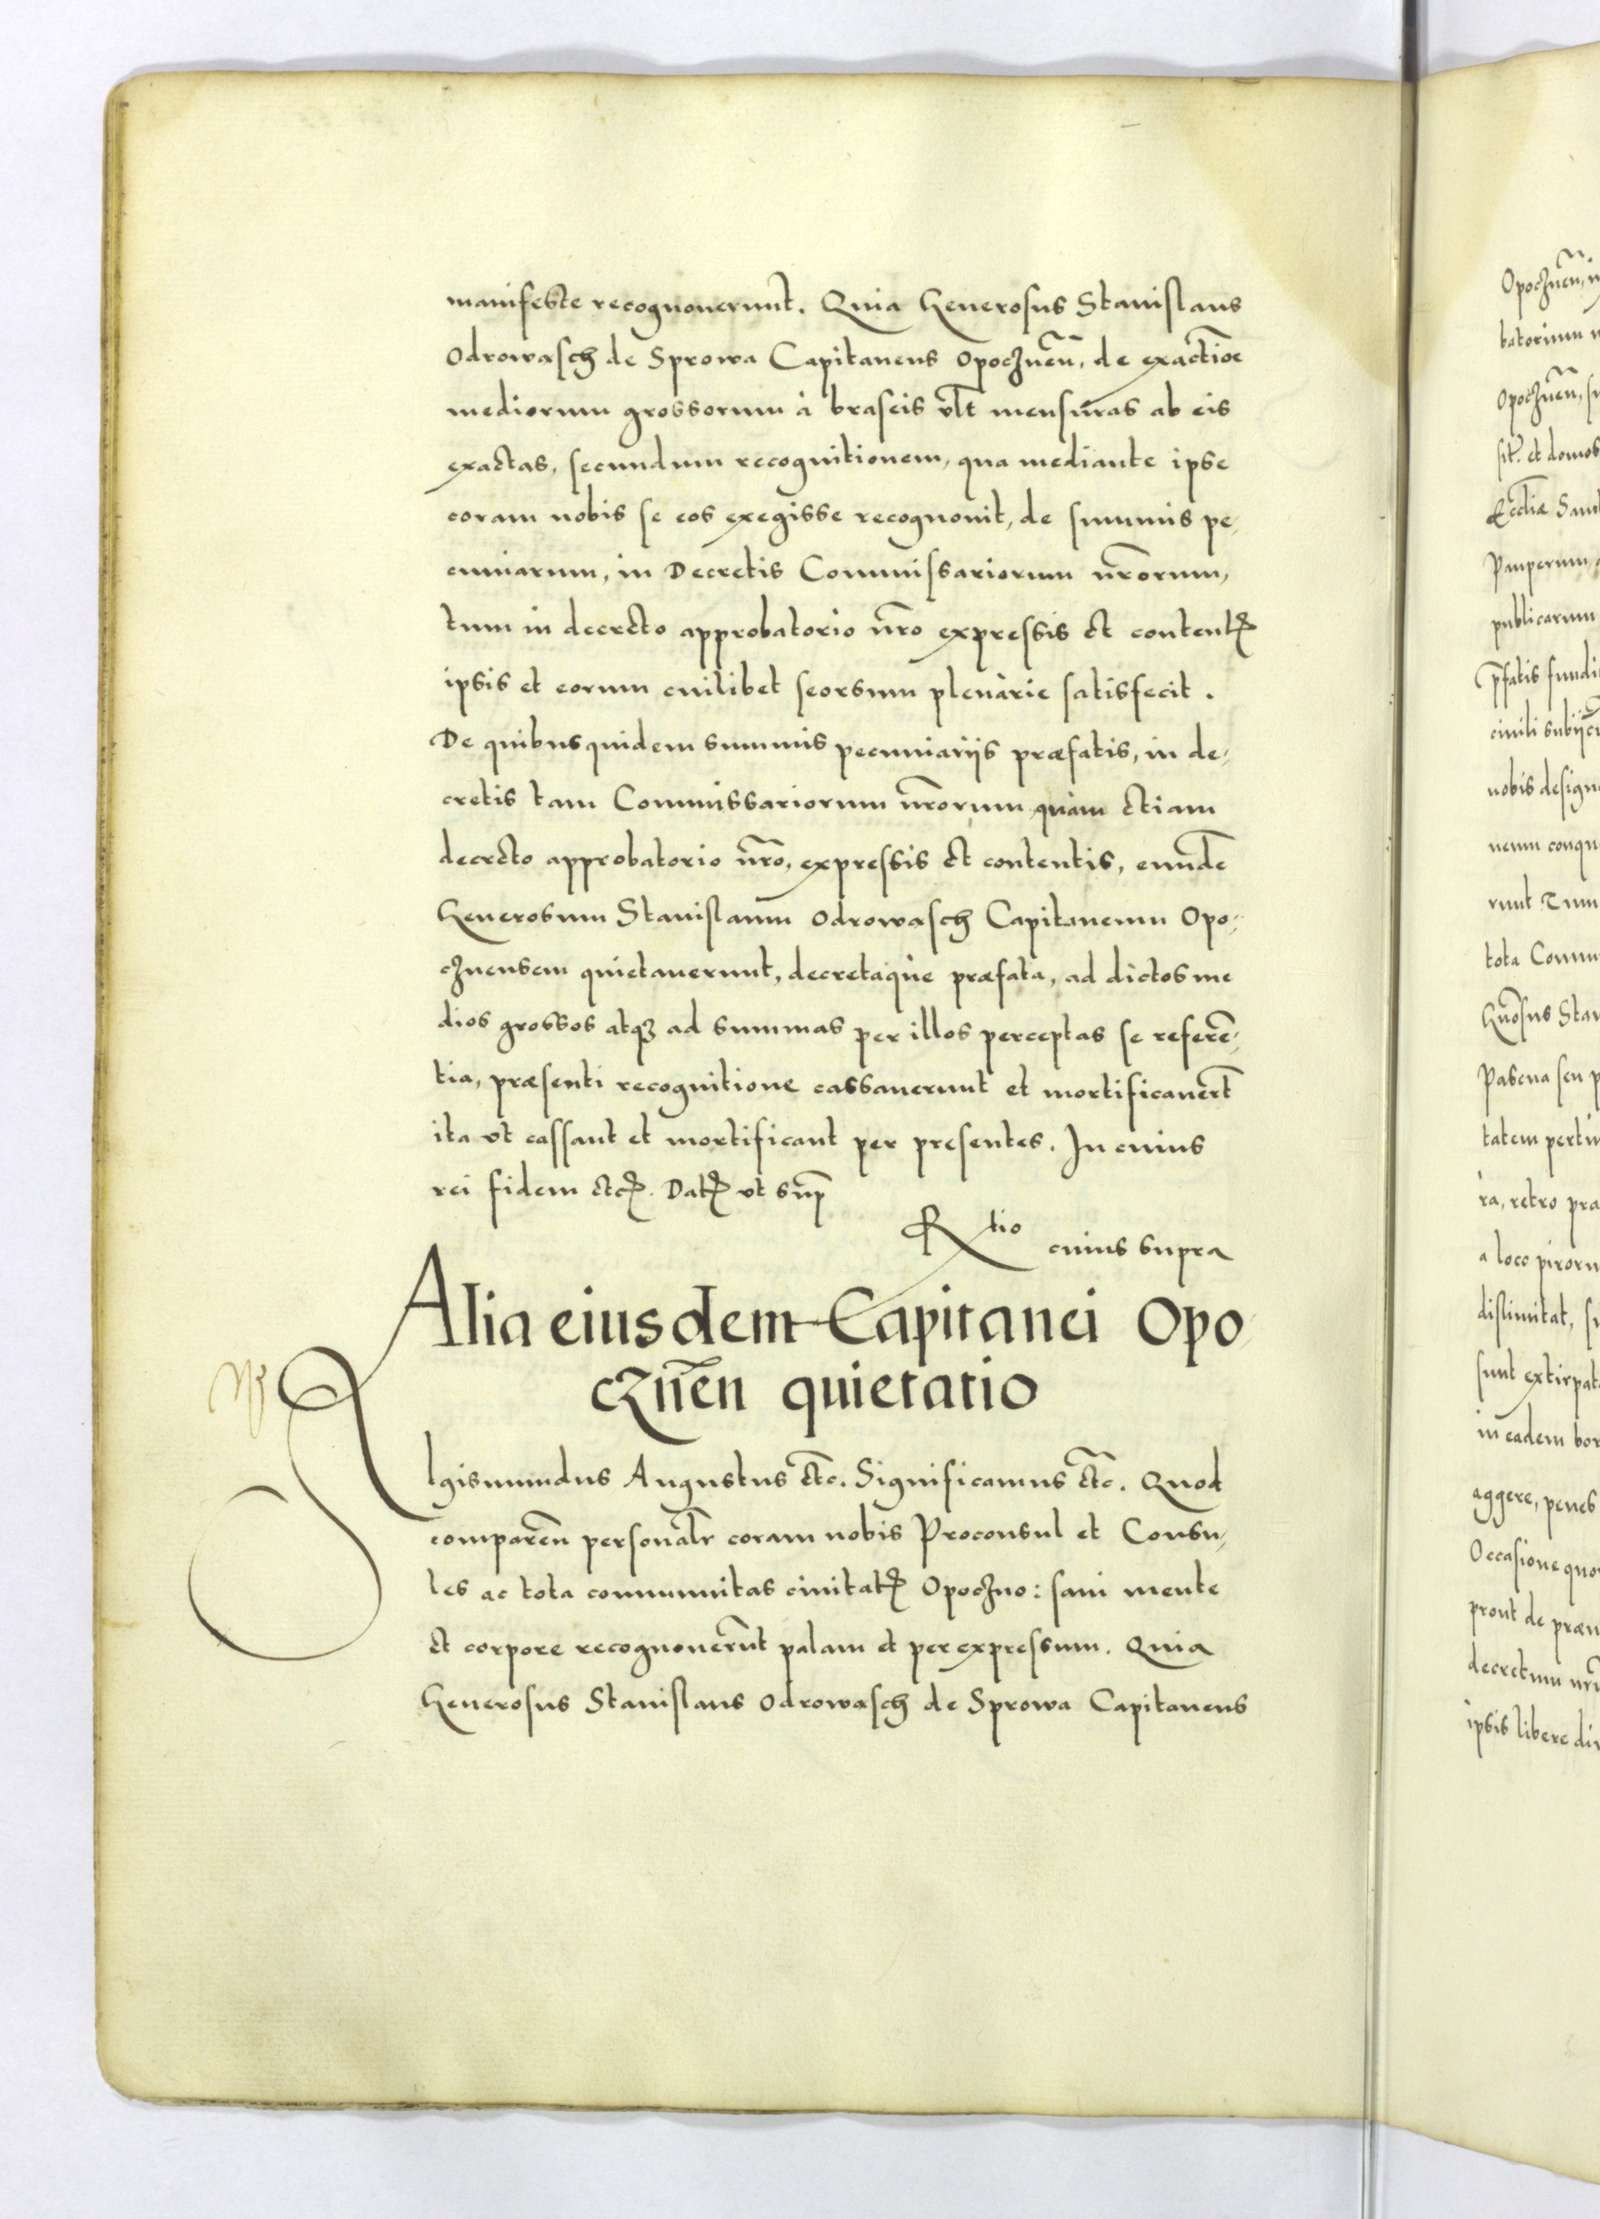 manifeste recognouerunt. Quia Generosus Stanislaus
Odrowasch de Sprowa Capitaneus Opocznen̄, de exactiōe
mediorum grossorum à braseis vl̄t mensuras ab eis
exactas, secundum recognitionem, qua mediante ipse
coram nobis se eos exegisse recognouit, de summis pe-
cuniarum, in Decretis Commissariorum nr̄orum,
tum in decreto approbatorio nr̄o expressis et content̄
ipsis et eorum cuilibet seorsum plenarie satisfecit.
De quibus quidem summis pecuniariis præfatis, in de-
cretis tam Commissariorum nr̄orum quàm etiam
decreto approbatorio nr̄o, expressis et contentis, eund̄e
Generosum Stanislaum Odrowasch Capitaneum Opo-
cznensem quietauerunt, decretaque præfata, ad dictos me
dios grossos atqꝫ ad summas per illos perceptas se referē-
tia, præsenti recognitione cassauerunt et mortificauer̄t
ita vt cassant et mortificant per presentes. In cuius
rei fidem etc̄. Dat̄ vt sup̄
Rtio
cuius supra
Alia eiusdem Capitanei Opo-
cznēn quietatio
Igismundus Augustus etc̄. Significamus etc̄. Quod
comparen̄ personal̄r coram nobis Proconsul et Consu-
les ac tota communitas ciuitat̄ Opoczno: sani mente
et corpore recognouerūnt palam et per expressum. Quia
Generosus Stanislaus Odrowasch de Sprowa Capitaneus
Opocznen̄,
Opocznen̄,
sit. et domos
Eccl̄iæ
Pauperum
publicarum
p̄fatis
ciuili
nobis
runt Tum
tota
Gn̄osus
Pascua seu
tatem
ra, retro
a loco
sunt
in eadem
aggere, penes
Occasione
prout de
decretum
ipsis libere